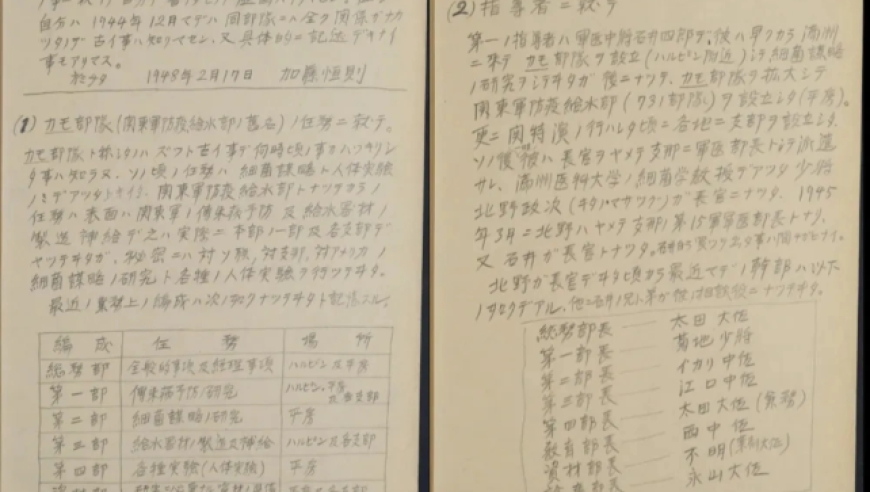 自分ハ1944年12月マデハ同部隊ニハ全ク関係ガナカ
ツタノデ古イ事ハ知リマセン、又具体的ニ記述デキナイ
事モアリマス。
1948年2月17日 加藤恒則
(1) カモ部隊(関東軍防疫給水部ノ旧名)ノ任務ニ就テ。
カモ部隊ト称シタノハズツト古イ事デ何時頃ノ事カハツキリシ
タ事ハ知ラヌ、ソノ頃ノ任務ハ細菌謀略ト人体実験
ノミデアツタ 関東軍防疫給水部トナツテカラノ
任務ハ表面ハ関東軍ノ傳染病予防及給水器材ノ
製造補給デ之ハ実際ニ本部ノ一部及各支部デ
ヤツテヰタガ、秘密ニハ対ソ独、対支那、対アメリカノ
細菌謀略ノ研究ト各種ノ人体実験ヲ行ツテヰタ。
最近ノ業務上ノ編成ハ次ノ如クナツテヰタト記憶スル。
編成 任務 場所
総務部 全般的事項及経理事項 ハルピン及平房
第一部 傳染病予防ノ研究 ハルピン、平房及各支部
第二部 細菌謀略ノ研究 平房
第三部 給水器材ノ製造及補給 ハルピン及各支部
第四部 各種実験(人体実験) 平房
資材部
(2) 指導者ニ就テ
第一ノ指導者ハ軍医中将石井四郎デ、彼ハ早クカラ満洲
ニ来テカモ部隊ヲ設立(ハルピン附近)シテ細菌謀略
ノ研究ヲシテヰタガ後ニナツテ、カモ部隊ヲ拡大シテ
関東軍防疫給水部(731部隊)ヲ設立シタ(平房)。
更ニ関特演ノ行ハレタ頃ニ各地ニ支部ヲ設立シタ。
ソノ後彼ハ長官ヲヤメテ支那ニ軍医部長トシテ派遣
サレ、満洲医科大学ノ細菌学教授デアツタ少将
北野政次(キタノマサツグ)ガ長官ニナツタ。1945
年3月ニ北野ハヤメテ支那ノ第15軍軍医部長トナリ、
又石井ガ長官トナツタ。
北野ガ長官デヰタ頃カラ最近マデノ幹部ハ以下
ノ如クデアル。
総務部長 太田大佐
第一部長 菊地少将
第二部長 イカリ中佐
第三部長 江口中佐
第四部長 太田大佐(兼務)
教育部長 西中佐
資材部長 不明
永山大佐